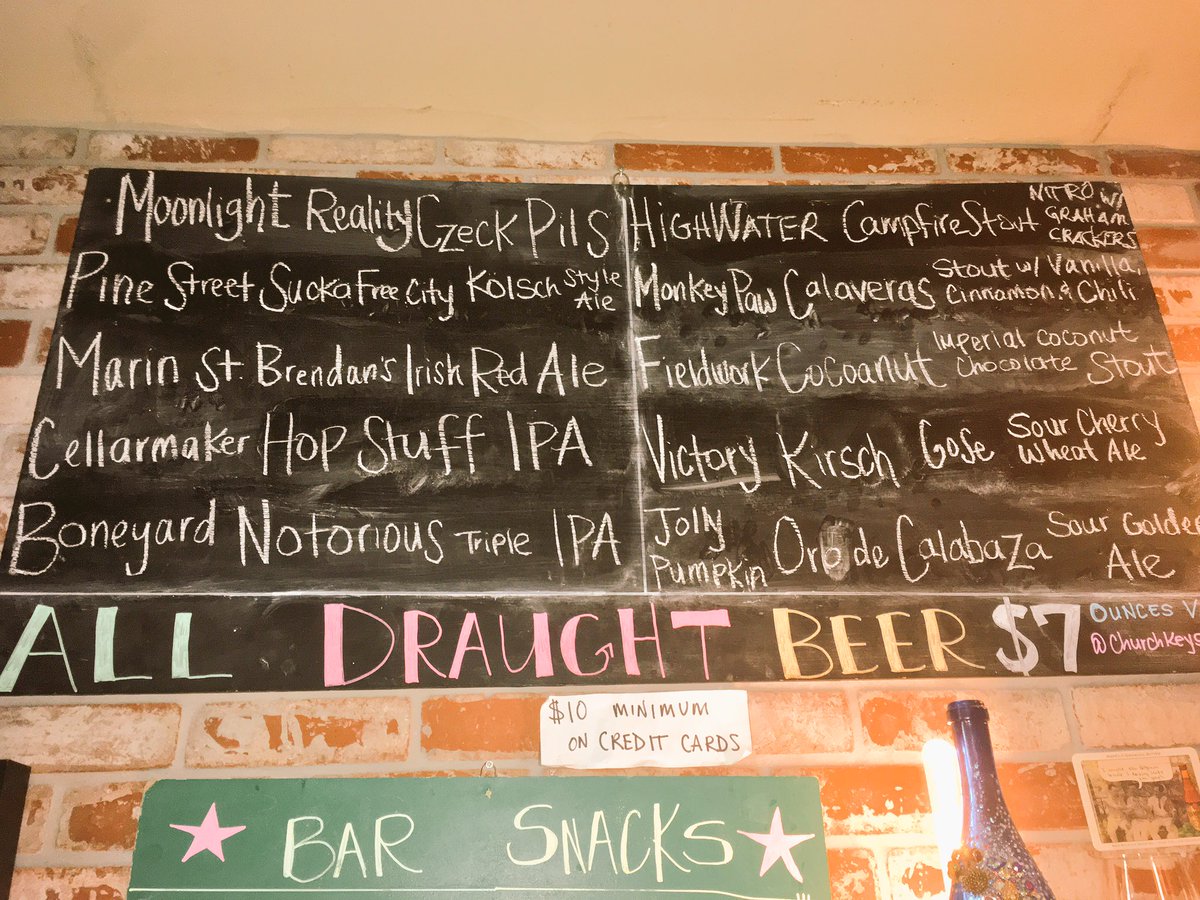 Moonlight Reality Czeck Pils
Pine Street Sucka Free City Kölsch Style Ale
Marin St. Brendan's Irish Red Ale
Cellarmaker Hop Stuff IPA
Boneyard Notorious Triple IPA
HIGHWATER Campfire Stout NITRO W/ GRAHAM CRACKERS
Monkey Paw Calaveras Stout w/ Vanilla, Cinnamon & Chili
Fieldwork Cocoanut Imperial Coconut Chocolate Stout
Victory Kirsch Gose Sour Cherry Wheat Ale
Jolly Pumpkin Oro de Calabaza Sour Golden Ale
ALL DRAUGHT BEER $7
OUNCES V
@ChurchKeyS
$10 MINIMUM
ON CREDIT CARDS
BAR SNACKS